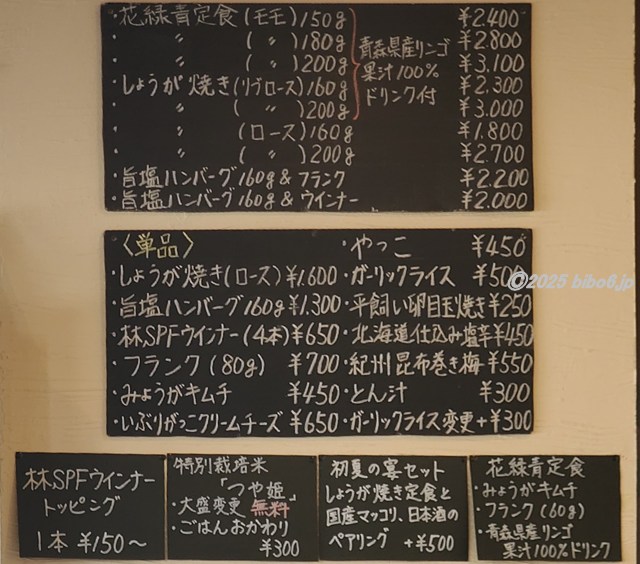 ・花緑青定食(モモ)150g ¥2.400
〃 (〃)180g ¥2.800
〃 (〃)200g ¥3.100
・しょうが焼き(リブロース)160g ¥2.300
〃 (〃)200g ¥3.000
青森県産リンゴ
果汁100%
ドリンク付
・〃 (ロース)160g ¥1.800
・〃 (〃)200g ¥2.700
・旨塩ハンバーグ160g&フランク ¥2.200
・旨塩ハンバーグ160g&ウインナー ¥2.000
〈単品〉
・しょうが焼き(ロース)¥1.600
・旨塩ハンバーグ160g¥1.300
・林SPFウインナー(4本)¥650
・フランク(80g) ¥700
・みょうがキムチ ¥450
・いぶりがっこクリームチーズ ¥650
・やっこ ¥450
・ガーリックライス ¥500
・平飼い卵目玉焼き¥250
・北海道仕込み塩辛¥450
・紀州昆布巻き梅¥550
・とん汁 ¥300
・ガーリックライス変更+¥300
©2025 bibo6.jp
林SPFウインナー
トッピング
1本 ¥150〜
特別栽培米
「つや姫」
・大盛変更 無料
・ごはんおかわり
¥300
初夏の宴セット
しょうが焼き定食と
国産マッコリ、日本酒の
ペアリング +¥500
花緑青定食
・みょうがキムチ
・フランク(60g)
・青森県産リンゴ
果汁100%ドリンク